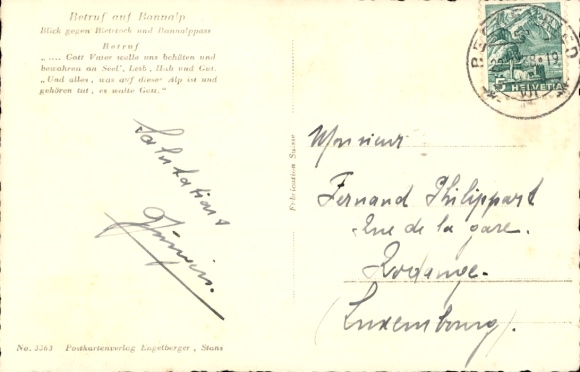 Betruf auf Bannalp
Blick gegen Bietstock und Bannalppass
Betruf
„.... Gott Vater walle uns behüten und
bewahren an Seel', Leib, Hab und Gut.
„Und alles, was auf dieser Alp ist und
gehören tut, es walte Gott."
Salutations
Fabrication Suisse
Monsieur
Fernand Philippart
Rue de la gare.
Rodange.
(Luxembourg).
5 HELVETIA
No. 3763 Postkartenverlag Engelberger, Stans